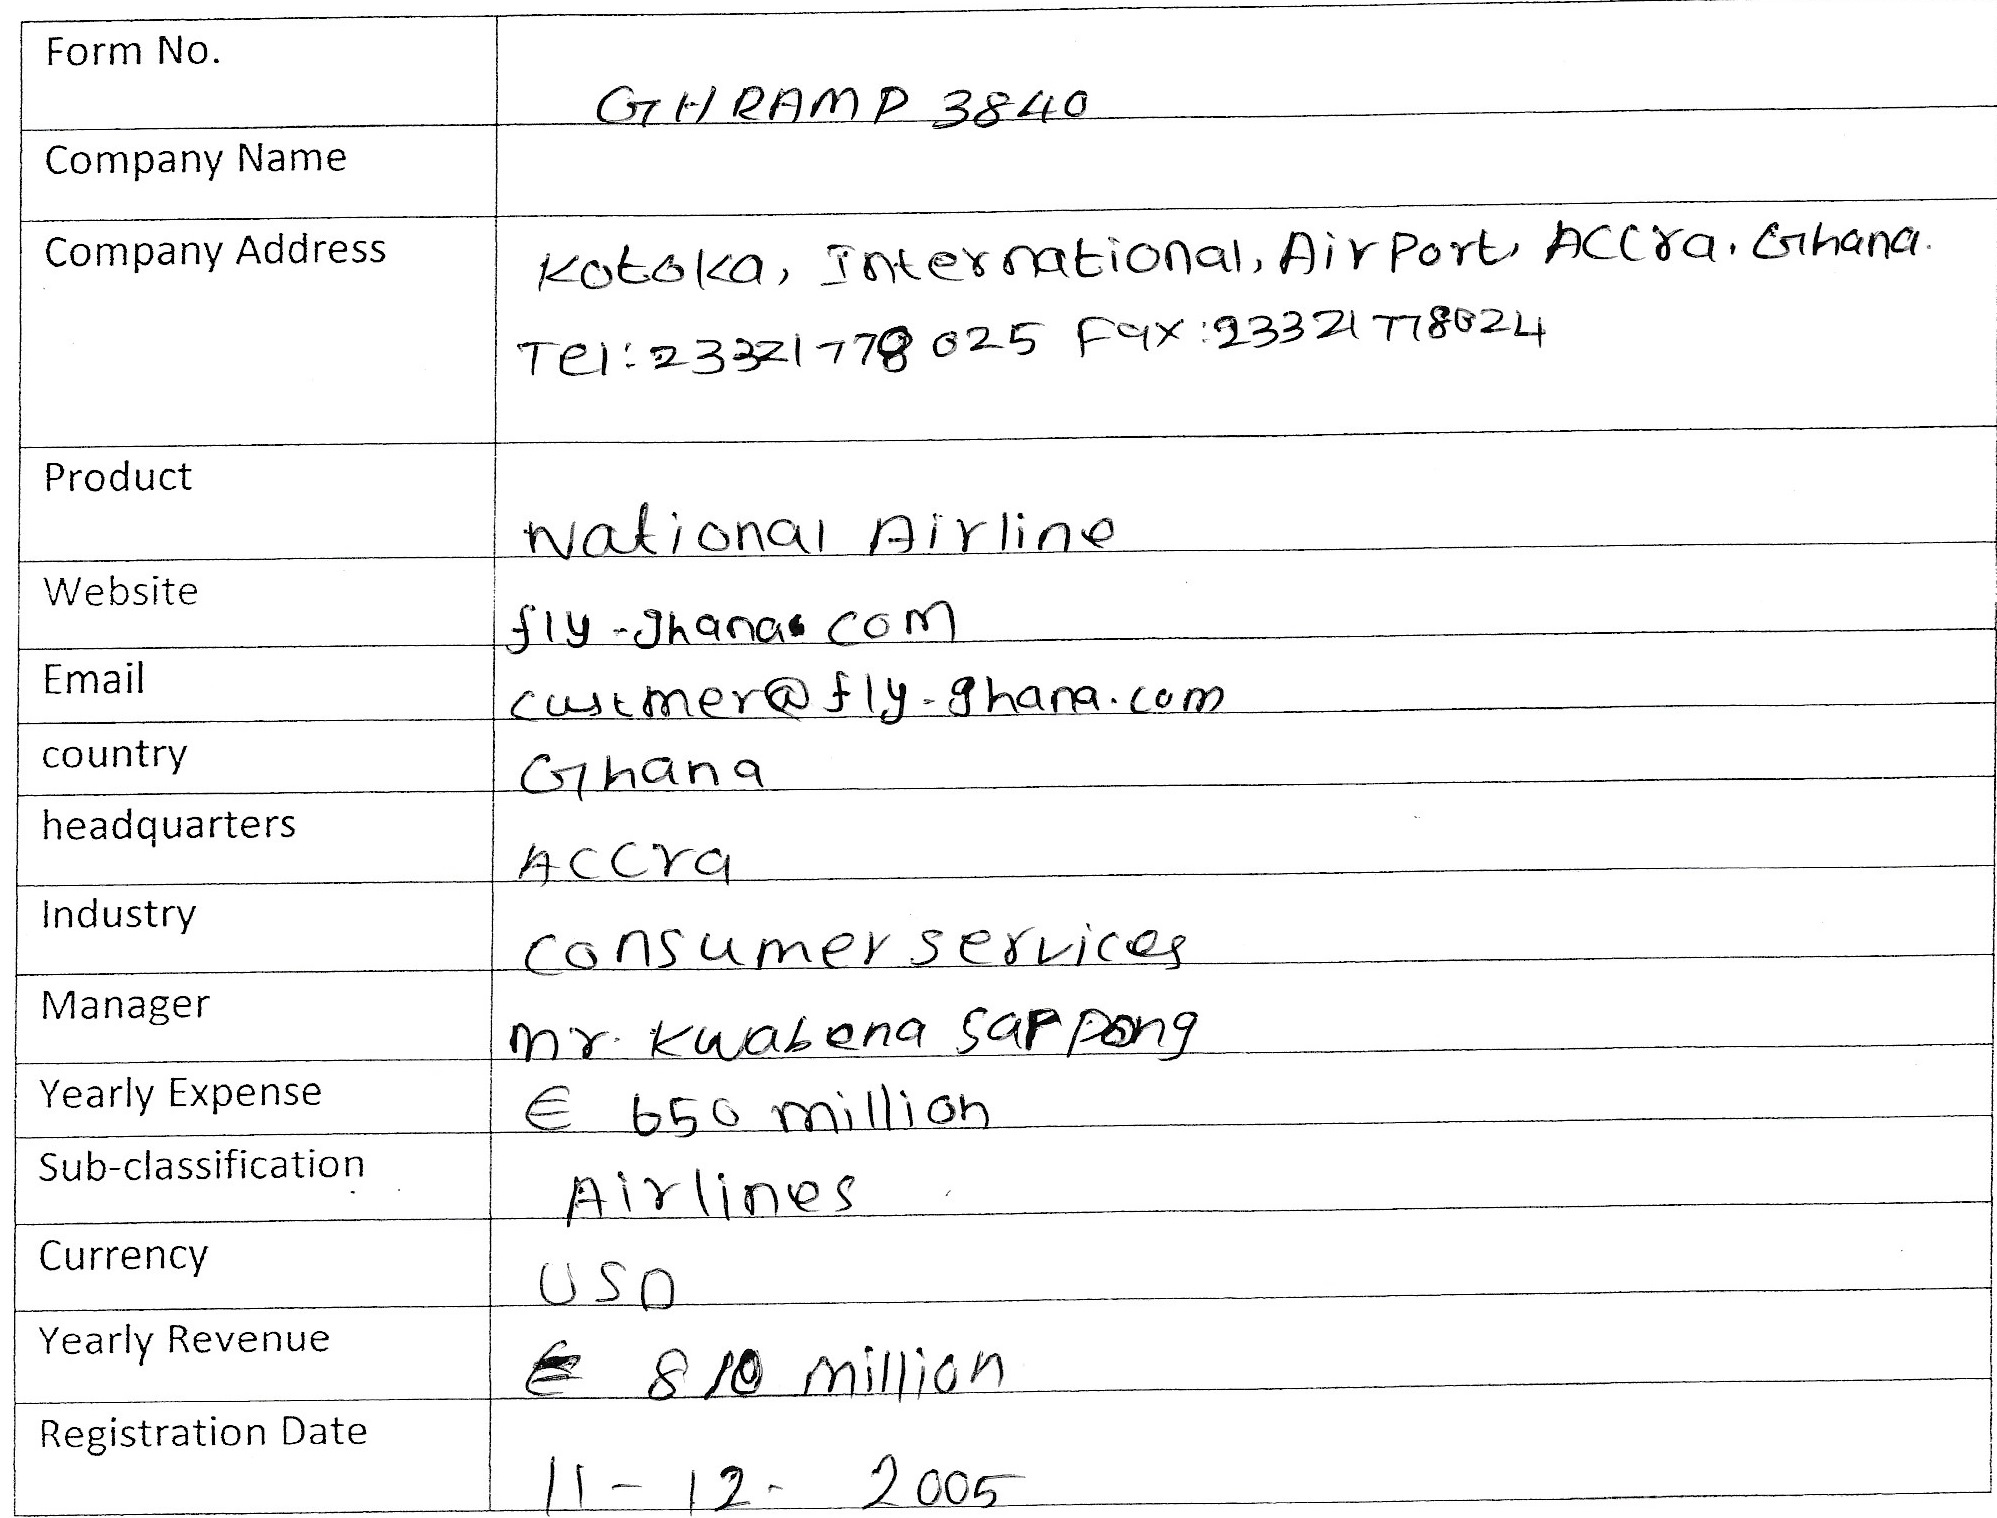 Form No.
GHRAMP 3840
Company Name
Company Address
Kotoka, International, Airport, Accra, Ghana.
Tel: 23321778025 Fax: 23321778024
Product
National Airline
Website
fly-ghana.com
Email
custmer@fly-ghana.com
country
Ghana
headquarters
Accra
Industry
consumer services
Manager
Mr. Kwabena Sarpong
Yearly Expense
€ 650 million
Sub-classification
Airlines
Currency
USD
Yearly Revenue
€ 810 million
Registration Date
11-12-2005